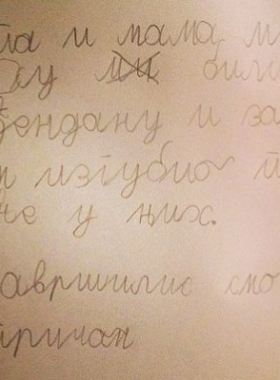 та и мама
били
ђендану и за
и изгубио
не у њих.
авршилио смо
причан